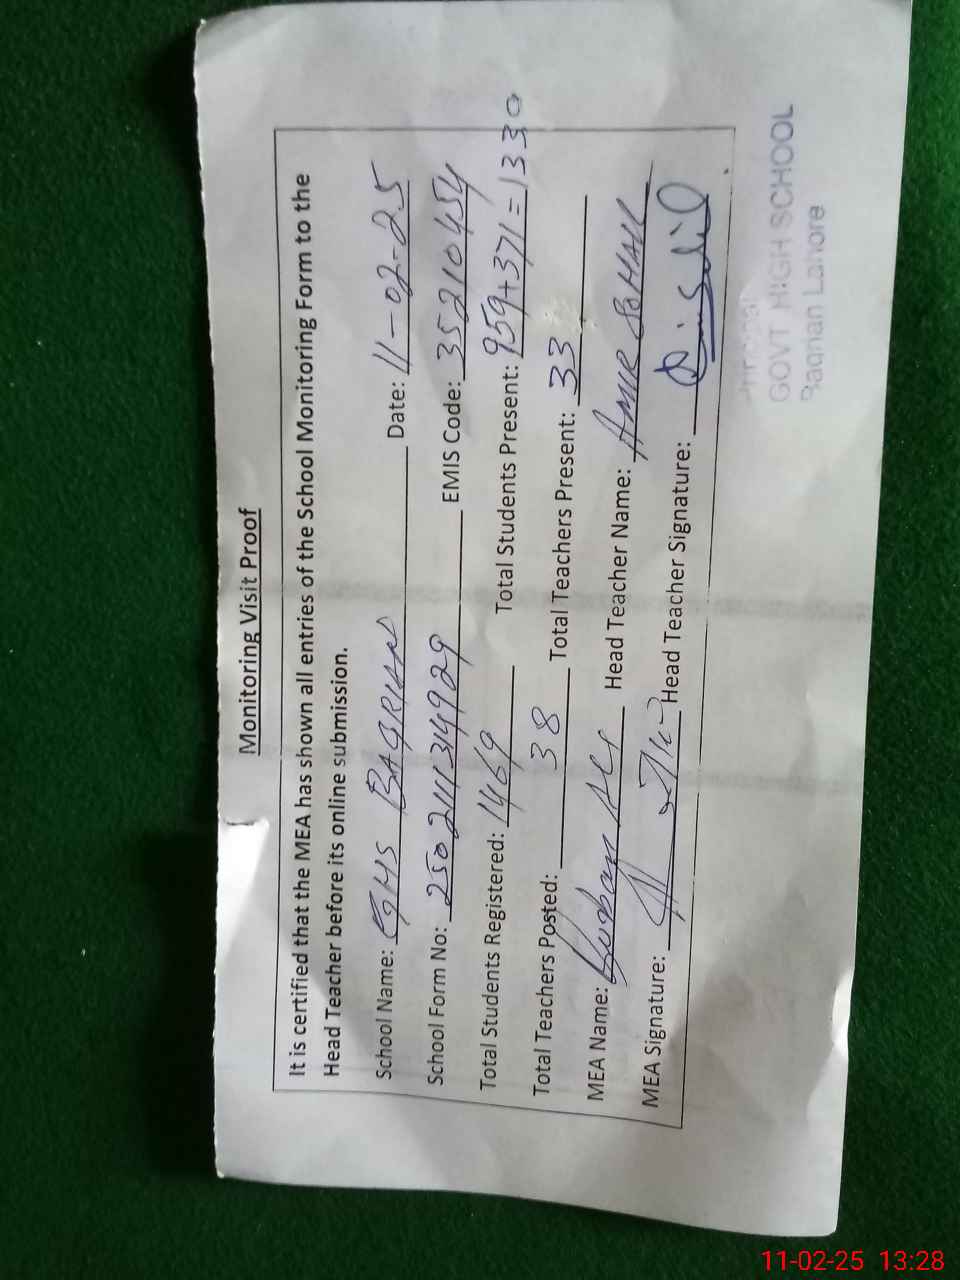 Monitoring Visit Proof
It is certified that the MEA has shown all entries of the School Monitoring Form to the
Head Teacher before its online submission.
School Name: GHS BAGRIAN Date: 11-02-25
School Form No: EMIS Code: 35210454
Total Students Registered: 1469 Total Students Present: 959+371=1330
Total Teachers Posted: 38 Total Teachers Present: 33
MEA Name: Head Teacher Name: AMIR
MEA Signature: Head Teacher Signature:
Principal
GOVT HIGH SCHOOL
Bagrian Lahore
11-02-25 13:28